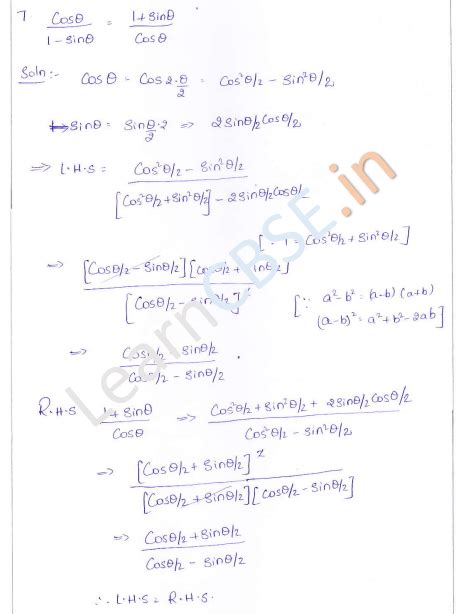 7 Cosθ / 1 - Sinθ = 1 + Sinθ / Cosθ
Soln :- Cosθ = Cos 2·θ/2 = Cos²θ/2 - Sin²θ/2
Sinθ = Sin θ/2 · 2 => 2Sinθ/2 Cosθ/2
=> L.H.S = Cos²θ/2 - Sin²θ/2 / [Cos²θ/2 + Sin²θ/2] - 2Sinθ/2 Cosθ/
[∵ 1 = Cos²θ/2 + Sin²θ/2]
=> [Cosθ/2 - Sinθ/2] [Cosθ/2 + inθ/2] / [Cosθ/2 - Sinθ/2]²
[∵ a² - b² = (a-b) (a+b)
(a-b)² = a² + b² - 2ab]
=> Cosθ/2 - Sinθ/2 / Cosθ/2 - Sinθ/2
R.H.S 1 + Sinθ / Cosθ => Cos²θ/2 + Sin²θ/2 + 2Sinθ/2 Cosθ/2 / Cos²θ/2 - Sin²θ/2
=> [Cosθ/2 + Sinθ/2]² / [Cosθ/2 + Sinθ/2] [Cosθ/2 - Sinθ/2]
=> Cosθ/2 + Sinθ/2 / Cosθ/2 - Sinθ/2
∴ L.H.S = R.H.S.
LearnCBSE.in